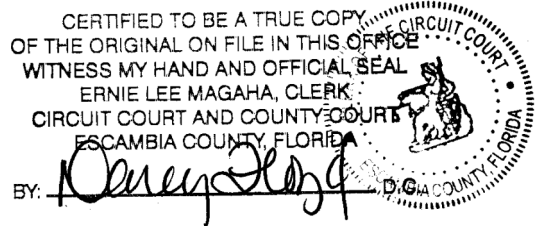 CERTIFIED TO BE A TRUE COPY
OF THE ORIGINAL ON FILE IN THIS OFFICE
WITNESS MY HAND AND OFFICIAL SEAL
ERNIE LEE MAGAHA, CLERK
CIRCUIT COURT AND COUNTY COURT
ESCAMBIA COUNTY, FLORIDA
BY: D.C.
CIRCUIT COURT
COUNTY, FLORIDA